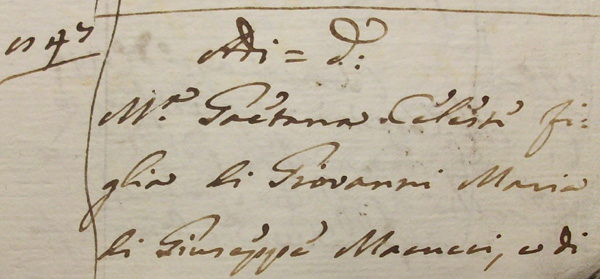 n° 47
Adi = d.°:
M.ª Gaetana Celeste fi=
glia di Giovanni Maria
di Giuseppe Macucci, e di